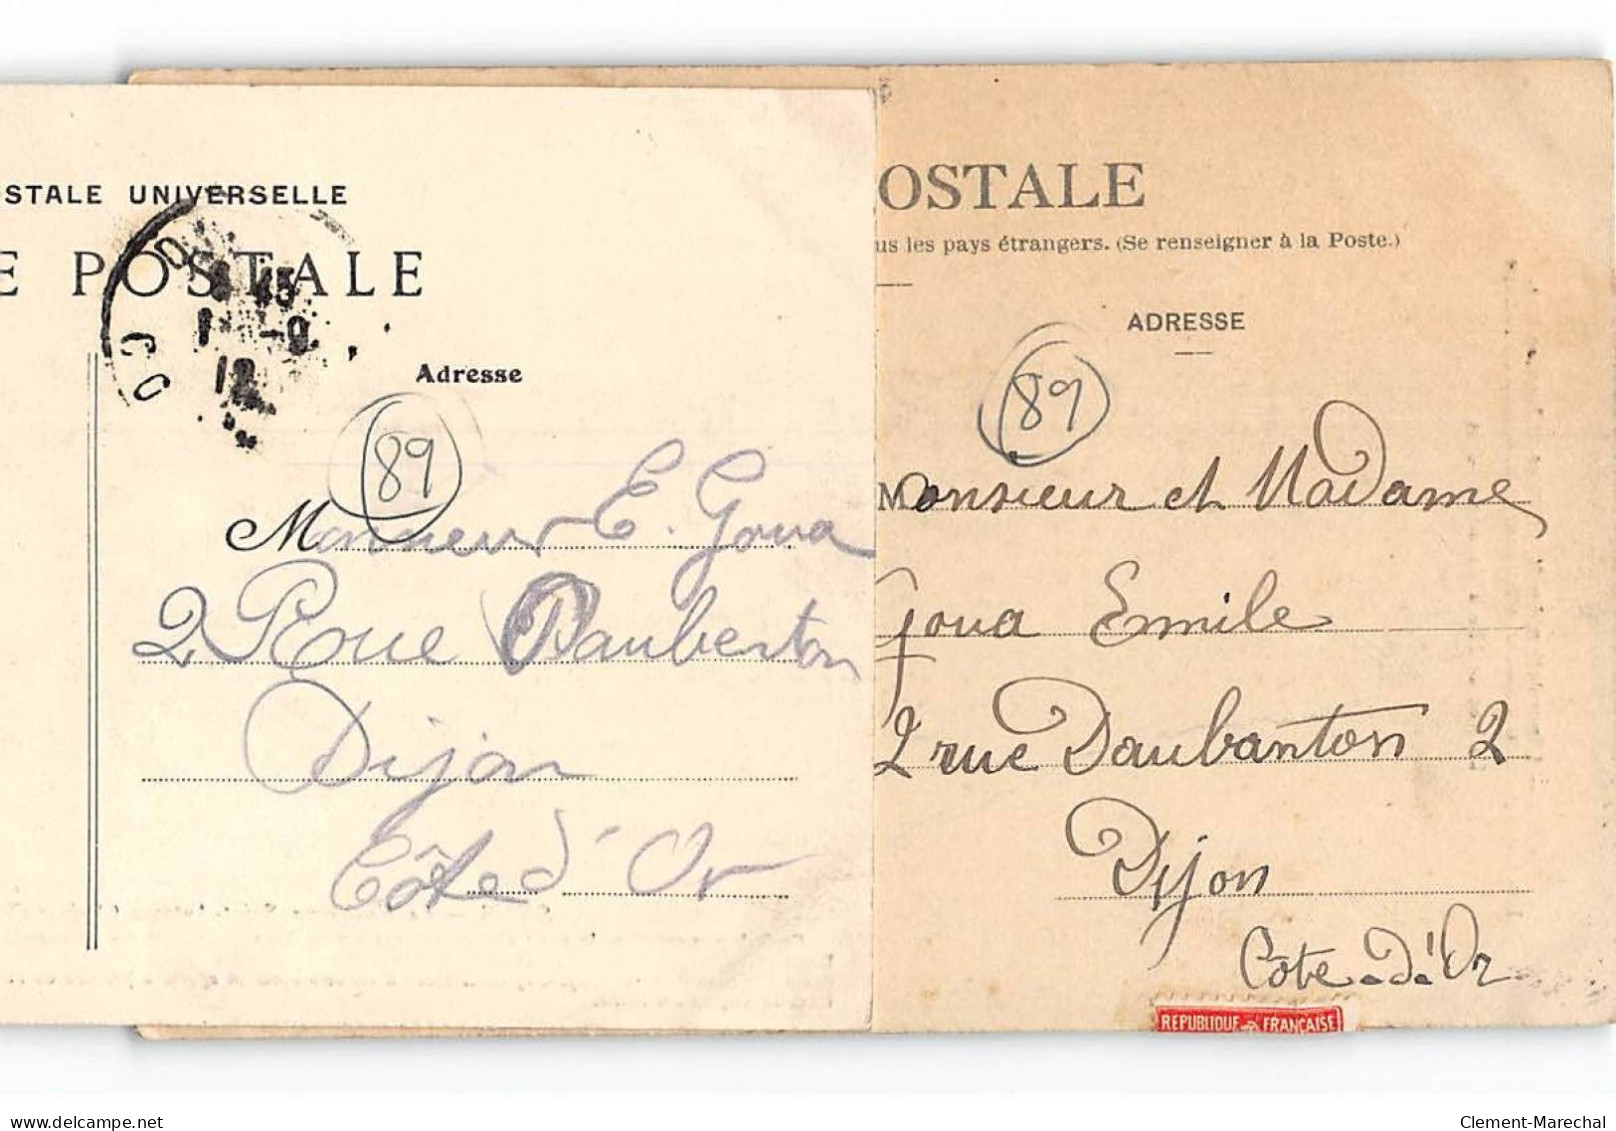 STALE UNIVERSELLE
E POSTALE
Adresse
89
Monsieur E. Goua
2 Rue Daubenton
Dijon
Côte d'Or
OSTALE
us les pays étrangers. (Se renseigner à la Poste.)
ADRESSE
89
Monsieur et Madame
Goua Emile
2 rue Daubanton 2
Dijon
Côte-d'Or
REPUBLIQUE FRANÇAISE
delcampe.net
Clement-Marechal